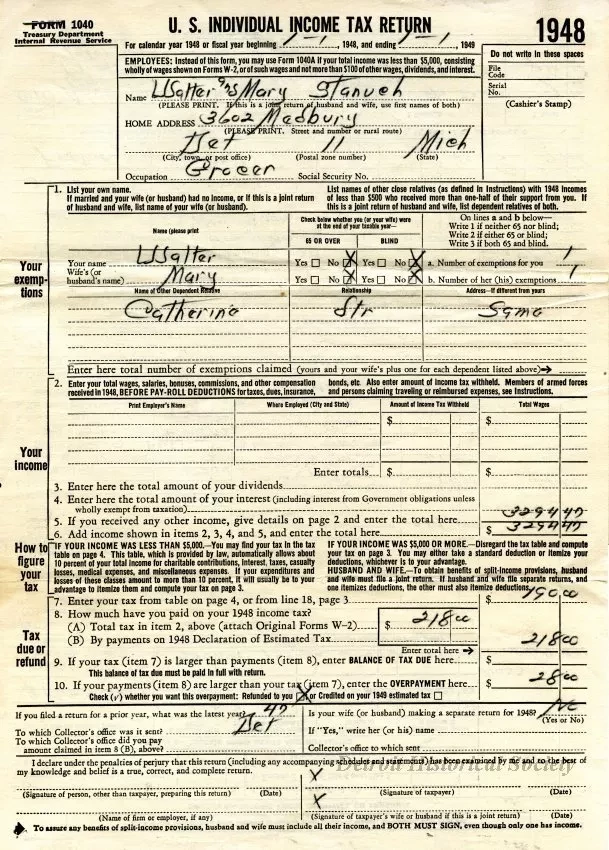 FORM 1040
Treasury Department
Internal Revenue Service
U. S. INDIVIDUAL INCOME TAX RETURN
For calendar year 1948 or fiscal year beginning 1-1, 1948, and ending 1-1, 1949
1948
EMPLOYEES: Instead of this form, you may use Form 1040A if your total income was less than $5,000, consisting
wholly of wages shown on Forms W-2, or of such wages and not more than $100 of other wages, dividends, and interest.
Do not write in these spaces
File
Code
Serial
No.
(Cashier's Stamp)
Name Walter Mary
(PLEASE PRINT. If this is a joint return of husband and wife, use first names of both)
HOME ADDRESS 3602 Medbury
(PLEASE PRINT. Street and number or rural route)
Det 11 Mich
(City, town, or post office) (Postal zone number) (State)
Occupation Grocer Social Security No.
Your exemptions
1. List your own name.
If married and your wife (or husband) had no income, or if this is a joint return
of husband and wife, list name of your wife (or husband).
List names of other close relatives (as defined in Instructions) with 1948 incomes
of less than $500 who received more than one-half of their support from you. If
this is a joint return of husband and wife, list dependent relatives of both.
Name (please print
Check below whether you (or your wife) were
at the end of your taxable year—
65 OR OVER BLIND
On lines a and b below—
Write 1 if neither 65 nor blind;
Write 2 if either 65 or blind;
Write 3 if both 65 and blind.
Your name Walter Yes No X Yes No X a. Number of exemptions for you 1
Wife's (or
husband's name) Mary Yes No X Yes No X b. Number of her (his) exemptions 1
Name of Other Dependent Relative Relationship Address—If different from yours
Catherine Str Same
Enter here total number of exemptions claimed (yours and your wife's plus one for each dependent listed above)→
Your income
2. Enter your total wages, salaries, bonuses, commissions, and other compensation
received in 1948, BEFORE PAY-ROLL DEDUCTIONS for taxes, dues, insurance,
bonds, etc. Also enter amount of income tax withheld. Members of armed forces
and persons claiming traveling or reimbursed expenses, see Instructions.
Print Employer's Name Where Employed (City and State) Amount of Income Tax Withheld Total Wages
$ $
Enter totals $ $
3. Enter here the total amount of your dividends
4. Enter here the total amount of your interest (including interest from Government obligations unless
wholly exempt from taxation)
5. If you received any other income, give details on page 2 and enter the total here 3294 47
6. Add income shown in items 2, 3, 4, and 5, and enter the total here $ 3294 47
How to figure your tax
IF YOUR INCOME WAS LESS THAN $5,000.—You may find your tax in the tax
table on page 4. This table, which is provided by law, automatically allows about
10 percent of your total income for charitable contributions, interest, taxes, casualty
losses, medical expenses, and miscellaneous expenses. If your expenditures and
losses of these classes amount to more than 10 percent, it will usually be to your
advantage to itemize them and compute your tax on page 3.
IF YOUR INCOME WAS $5,000 OR MORE.—Disregard the tax table and compute
your tax on page 3. You may either take a standard deduction or itemize your
deductions, whichever is to your advantage.
HUSBAND AND WIFE.—To obtain benefits of split-income provisions, husband
and wife must file a joint return. If husband and wife file separate returns, and
one itemizes deductions, the other must also itemize deductions.
Tax due or refund
7. Enter your tax from table on page 4, or from line 18, page 3 $ 190 00
8. How much have you paid on your 1948 income tax?
(A) Total tax in item 2, above (attach Original Forms W-2) $ 218 00
(B) By payments on 1948 Declaration of Estimated Tax
Enter total here→ 218 00
9. If your tax (item 7) is larger than payments (item 8), enter BALANCE OF TAX DUE here $
This balance of tax due must be paid in full with return.
10. If your payments (item 8) are larger than your tax (item 7), enter the OVERPAYMENT here $ 28 00
Check (√) whether you want this overpayment: Refunded to you or Credited on your 1949 estimated tax
If you filed a return for a prior year, what was the latest year? 47
To which Collector's office was it sent? Det
To which Collector's office did you pay
amount claimed in item 8 (B), above?
Is your wife (or husband) making a separate return for 1948?
(Yes or No)
If "Yes," write her (or his) name
Collector's office to which sent
I declare under the penalties of perjury that this return (including any accompanying schedules and statements) has been examined by me and to the best of
my knowledge and belief is a true, correct, and complete return.
Detroit Historical Society
X
(Signature of person, other than taxpayer, preparing this return) (Date) (Signature of taxpayer) (Date)
X
(Name of firm or employer, if any) (Signature of taxpayer's wife or husband if this is a joint return) (Date)
To assure any benefits of split-income provisions, husband and wife must include all their income, and BOTH MUST SIGN, even though only one has income.